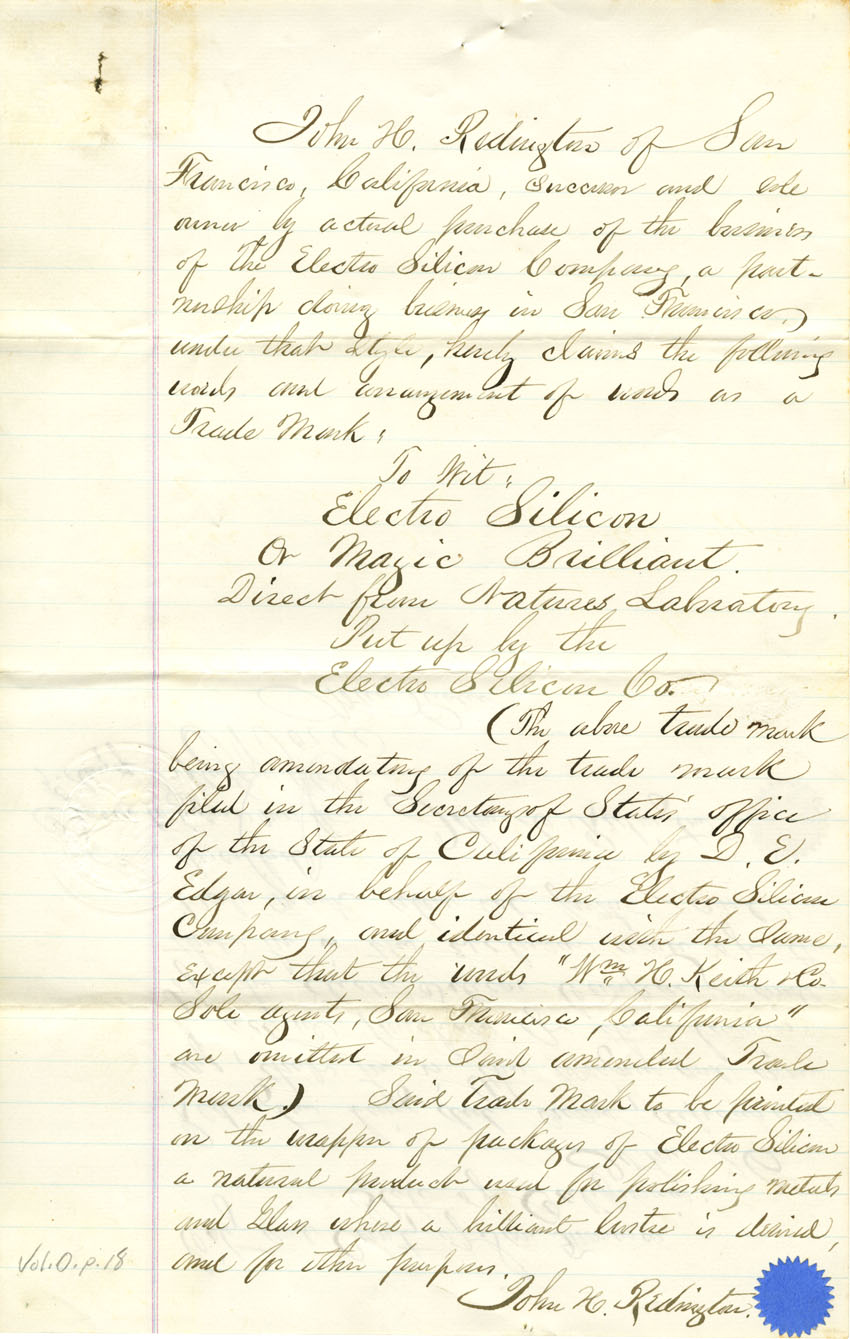 John H. Redington of San
Francisco, California, successor and sole
owner by actual purchase of the business
of the Electro Silicon Company, a part-
nership doing business in San Francisco,
under that style, hereby claims the following
words and arrangement of words as a
Trade Mark:
To Wit:
Electro Silicon
Or Magic Brilliant.
Direct from Natures Labratory.
Put up by the
Electro Silicon Co.
(The above trade mark
being amendatory of the trade mark
filed in the Secretary of States' office
of the State of California by D. E.
Edgar, in behalf of the Electro Silicon
Company, and identical with the same,
except that the words "Wm H. Keith & Co.
Sole agents, San Francisco, California"
are omitted in said amended Trade
Mark.) Said Trade Mark to be printed
on the wrapper of packages of Electro Silicon
a natural product used for polishing metals
and Glass where a brilliant lustre is desired,
and for other purposes.
John H. Redington.
Vol. O. p. 18